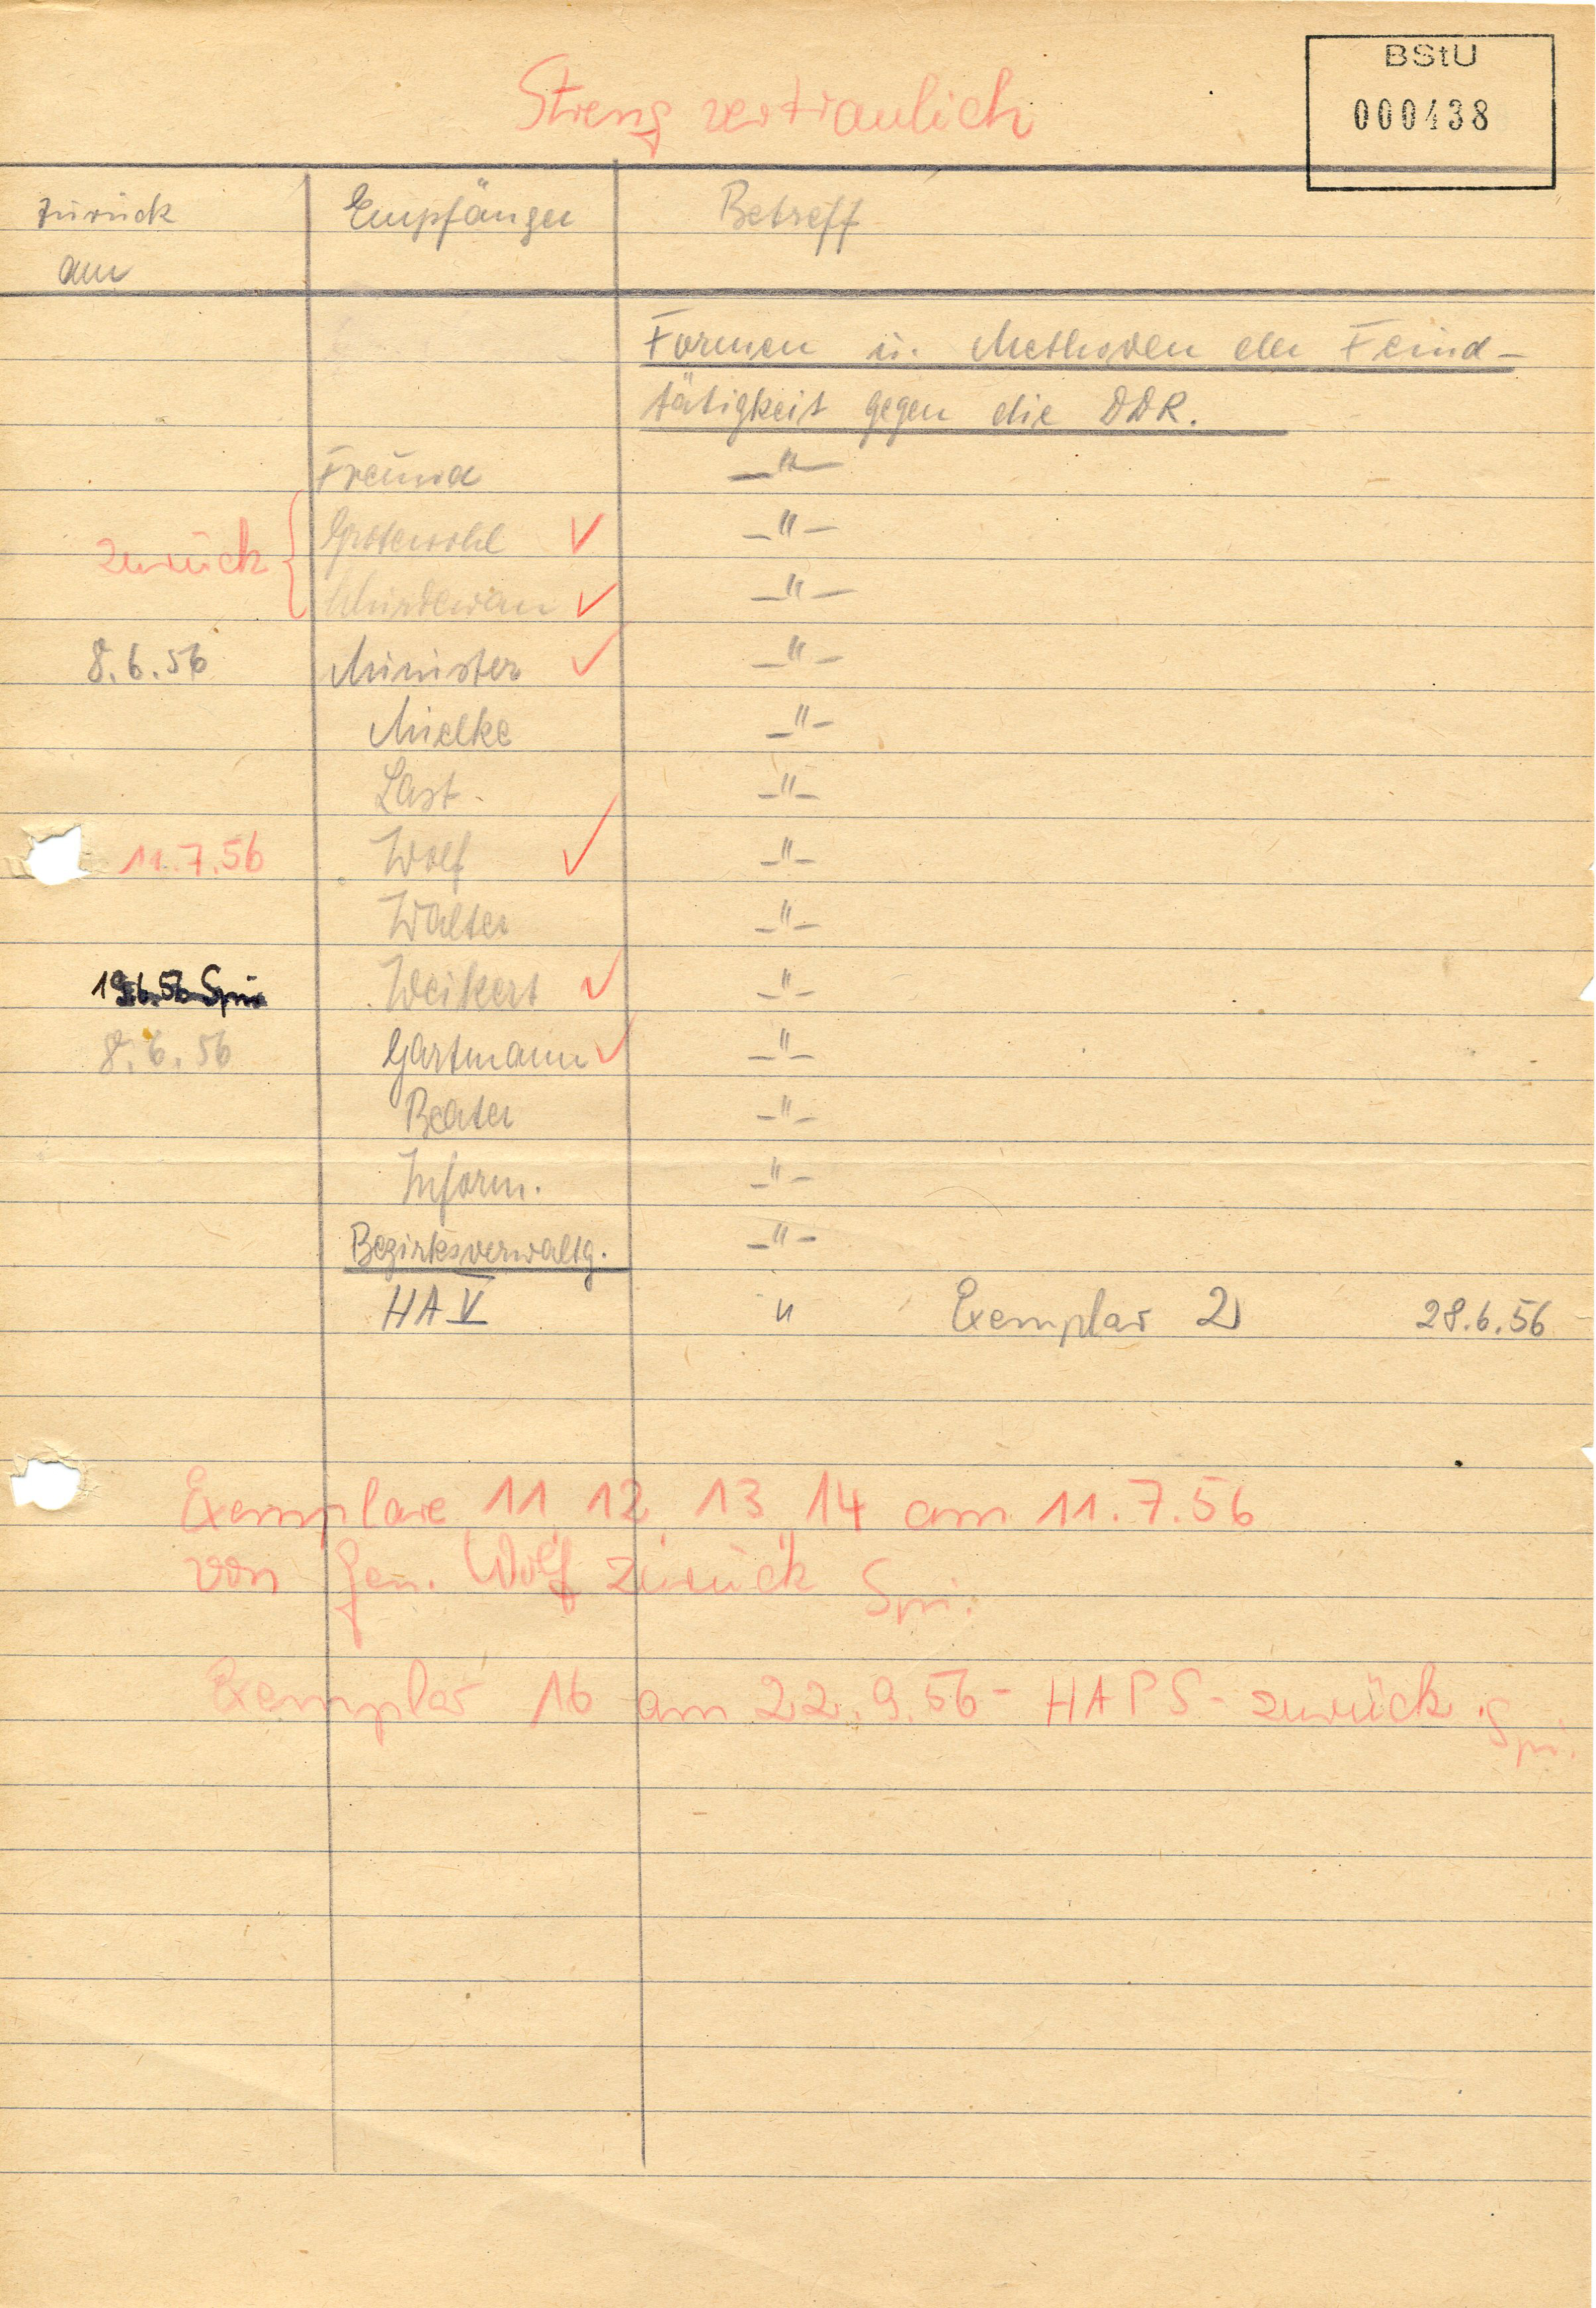 BStU
000438
Streng vertraulich
zurück am Empfänger Betreff
Formen u. Methoden der Feind-
tätigkeit gegen die DDR.
Freund —"—
zurück { Grotewohl ✓ —"—
Schirdewan ✓ —"—
8.6.56 Minister ✓ —"—
Mielke —"—
Last —"—
11.7.56 Wolf ✓ —"—
Walter —"—
Weikert ✓ —"—
8.6.56 Gartmann ✓ —"—
Beater —"—
Inform. —"—
Bezirksverwaltg. —"—
HA V " Exemplar 2 28.6.56
Exemplare 11, 12, 13, 14 am 11.7.56
von Gen. Wolf zurück Spi.
Exemplar 16 am 22.9.56 - HA PS - zurück Spi.